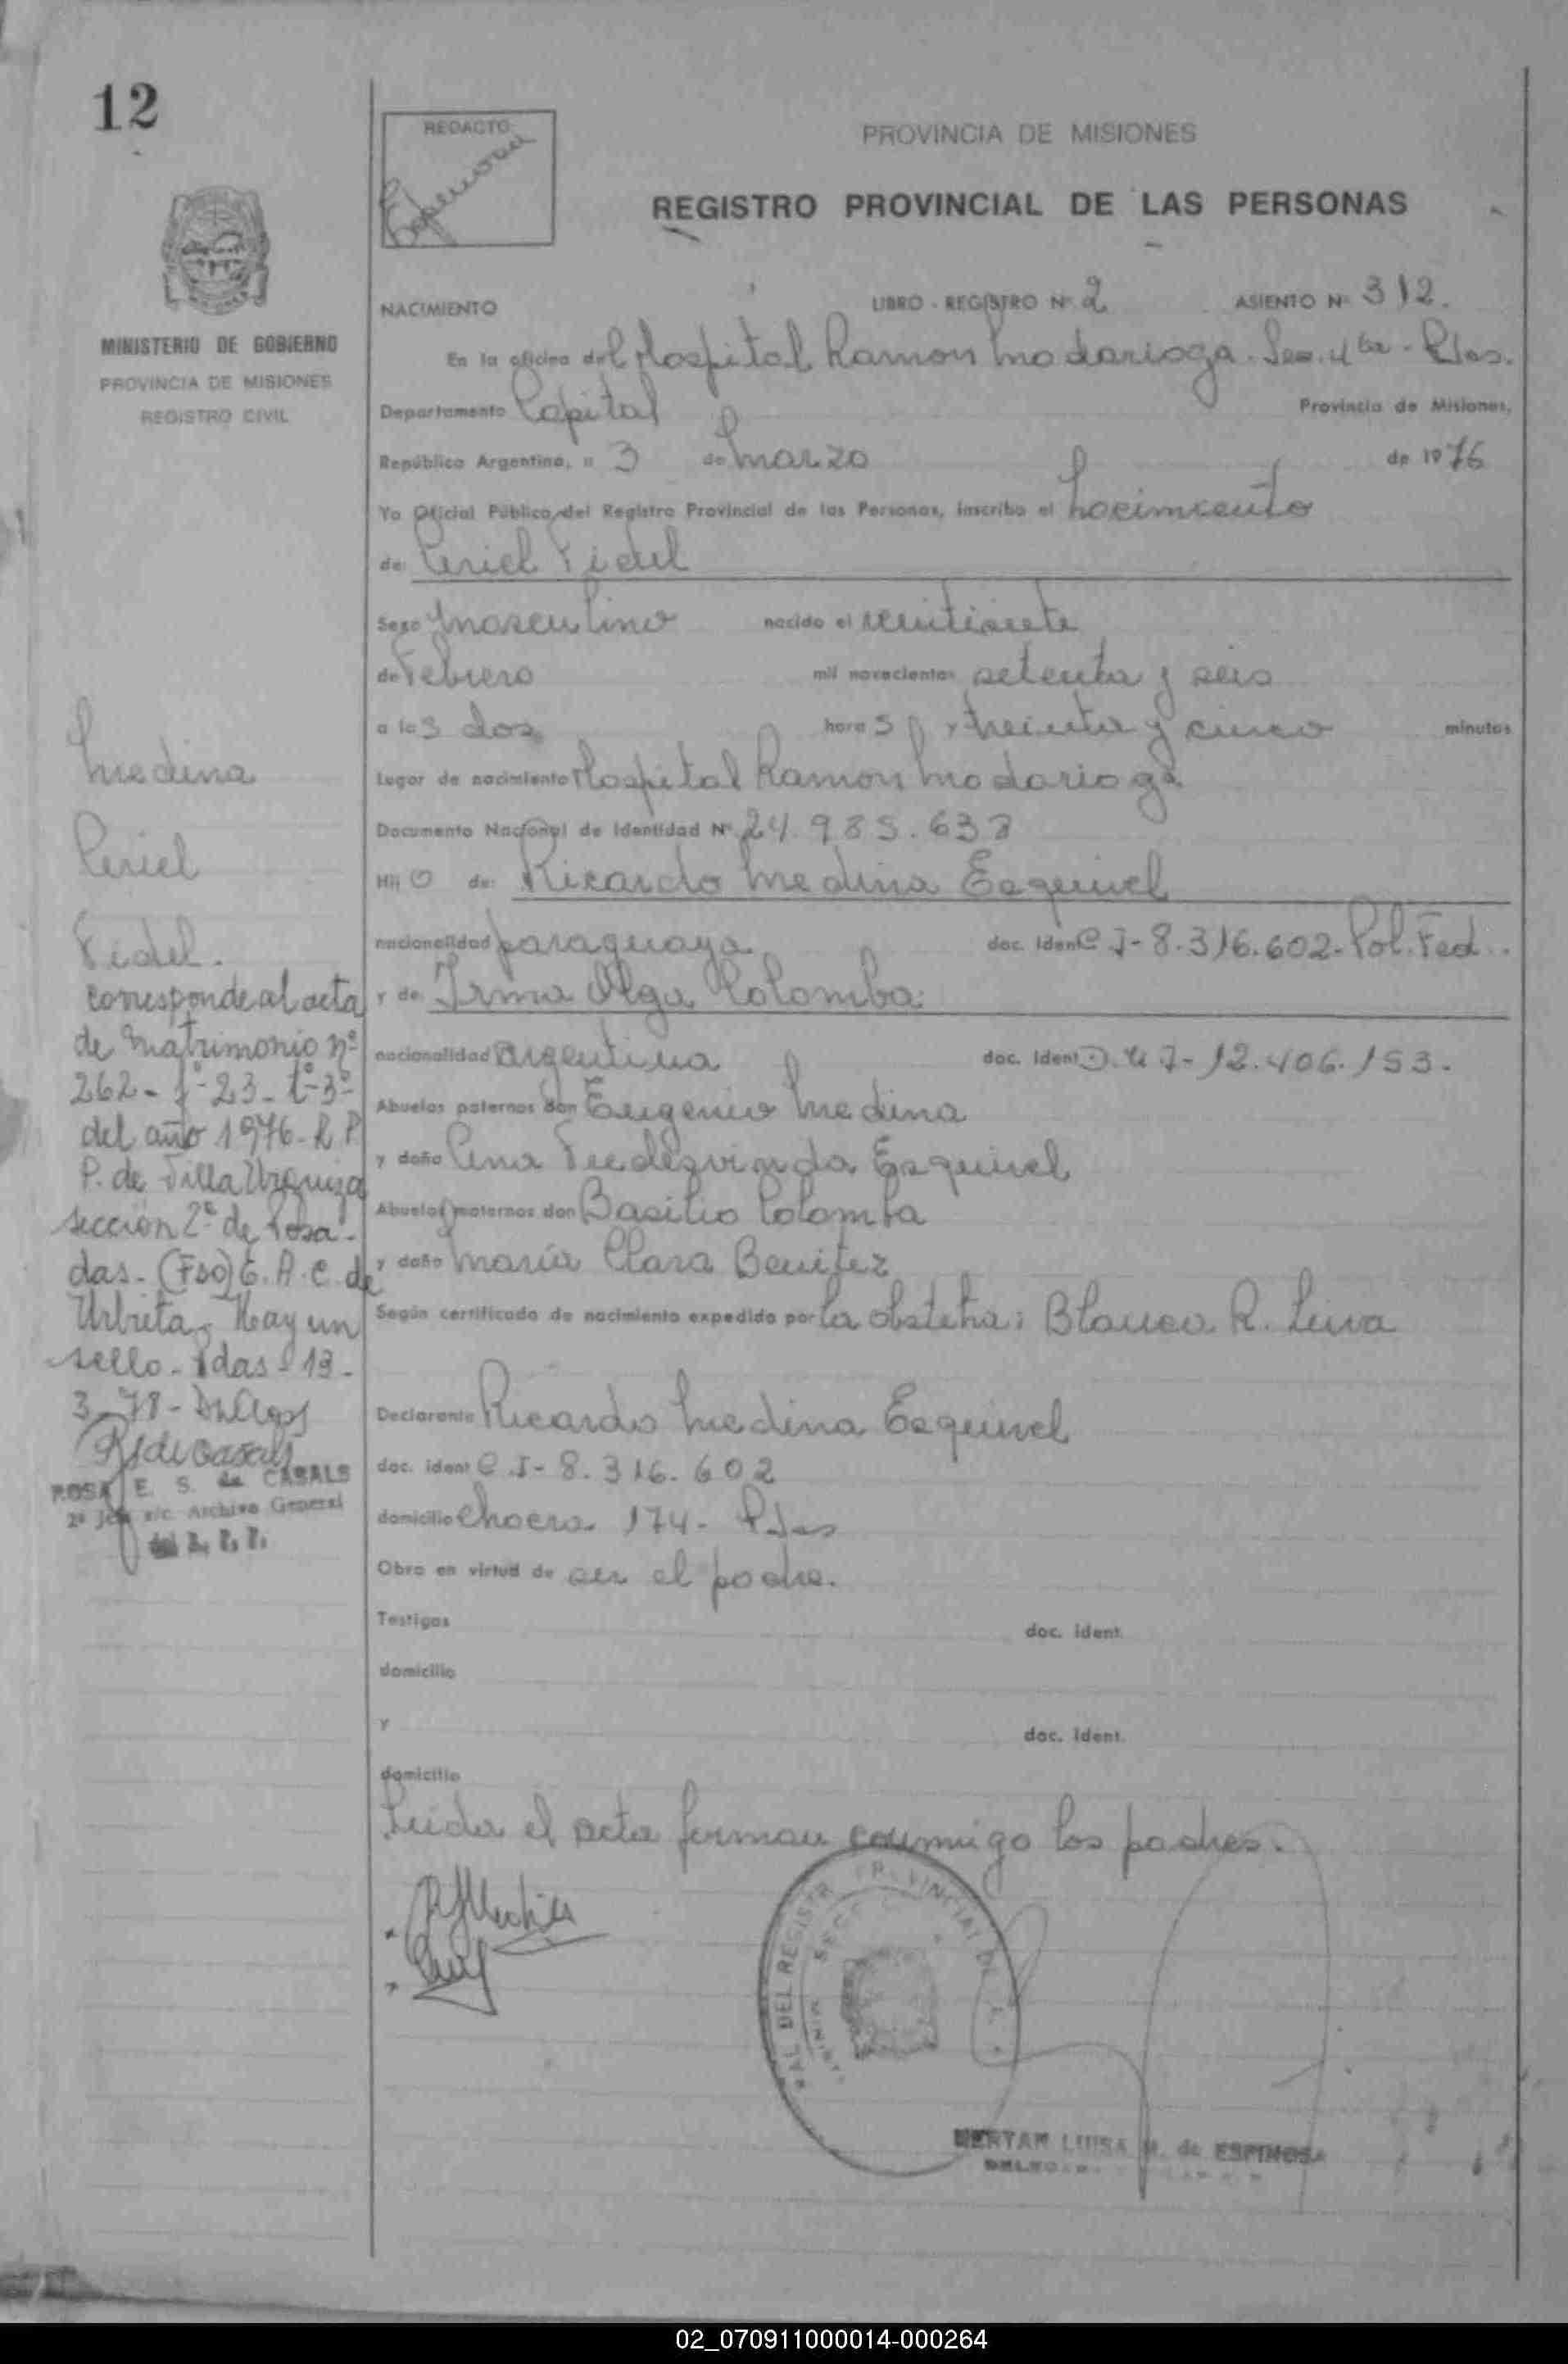 12
REDACTO:
PROVINCIA DE MISIONES
REGISTRO PROVINCIAL DE LAS PERSONAS
MINISTERIO DE GOBIERNO
PROVINCIA DE MISIONES
REGISTRO CIVIL
NACIMIENTO LIBRO - REGISTRO Nº 2 ASIENTO Nº 312.
En la oficina del Hospital Ramon Madariaga. Sec. 4ta - Pdas.
Departamento Capital Provincia de Misiones,
República Argentina, a 3 de Marzo de 1976
Yo Oficial Público del Registro Provincial de las Personas, inscribo el Nacimiento
de: Ariel Fidel
Sexo Masculino nacido el veintisiete
de Febrero mil novecientos setenta y seis
a las dos horas y treinta y cinco minutos
Lugar de nacimiento Hospital Ramon Madariaga
Documento Nacional de Identidad Nº 24.985.638
Hijo de: Ricardo Medina Esquivel
nacionalidad paraguaya doc. Ident C.I- 8.316.602- Pol. Fed.
y de: Irma Olga Colomba
nacionalidad argentina doc. Ident D.N.I- 12.406.153.
Abuelos paternos don Eugenio Medina
y doña Ana Fredesvinda Esquivel
Abuelos maternos don Basilio Colomba
y doña María Clara Benitez
Según certificado de nacimiento expedido por la obstetra: Blanca R. Leiva
Declarante Ricardo Medina Esquivel
doc. ident C.I- 8.316.602
domicilio Chacra 174- Pdas
Obra en virtud de ser el padre.
Testigos doc. ident.
domicilio
y doc. Ident.
domicilio
Leída el acta firman conmigo los padres.
Medina
Ariel
Fidel.
corresponde al acta
de Matrimonio nº
262- fº 23- tº 3º
del año 1976- R.P.
P. de Villa Urquiza
sección 2ª de Posa-
das- (Fdo) E. A. C. de
Urbieta- Hay un
sello- Pdas- 13-
3-78-
ROSA E. S. de CASALS
2º Jefe a/c. Archivo General
del R. P. P.
MIRTAN LUISA M. de ESPINOSA
02_070911000014-000264